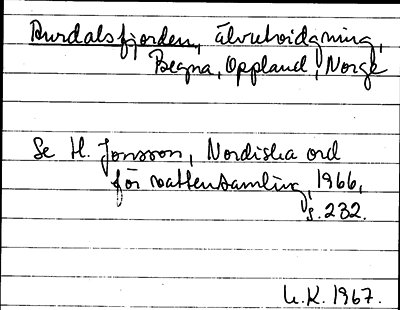 Aurdalsfjorden, älvutvidgning,
Begna, Oppland, Norge
Se H. Jonsson, Nordiska ord
för vattensamling, 1966,
s. 232.
U.K. 1967.